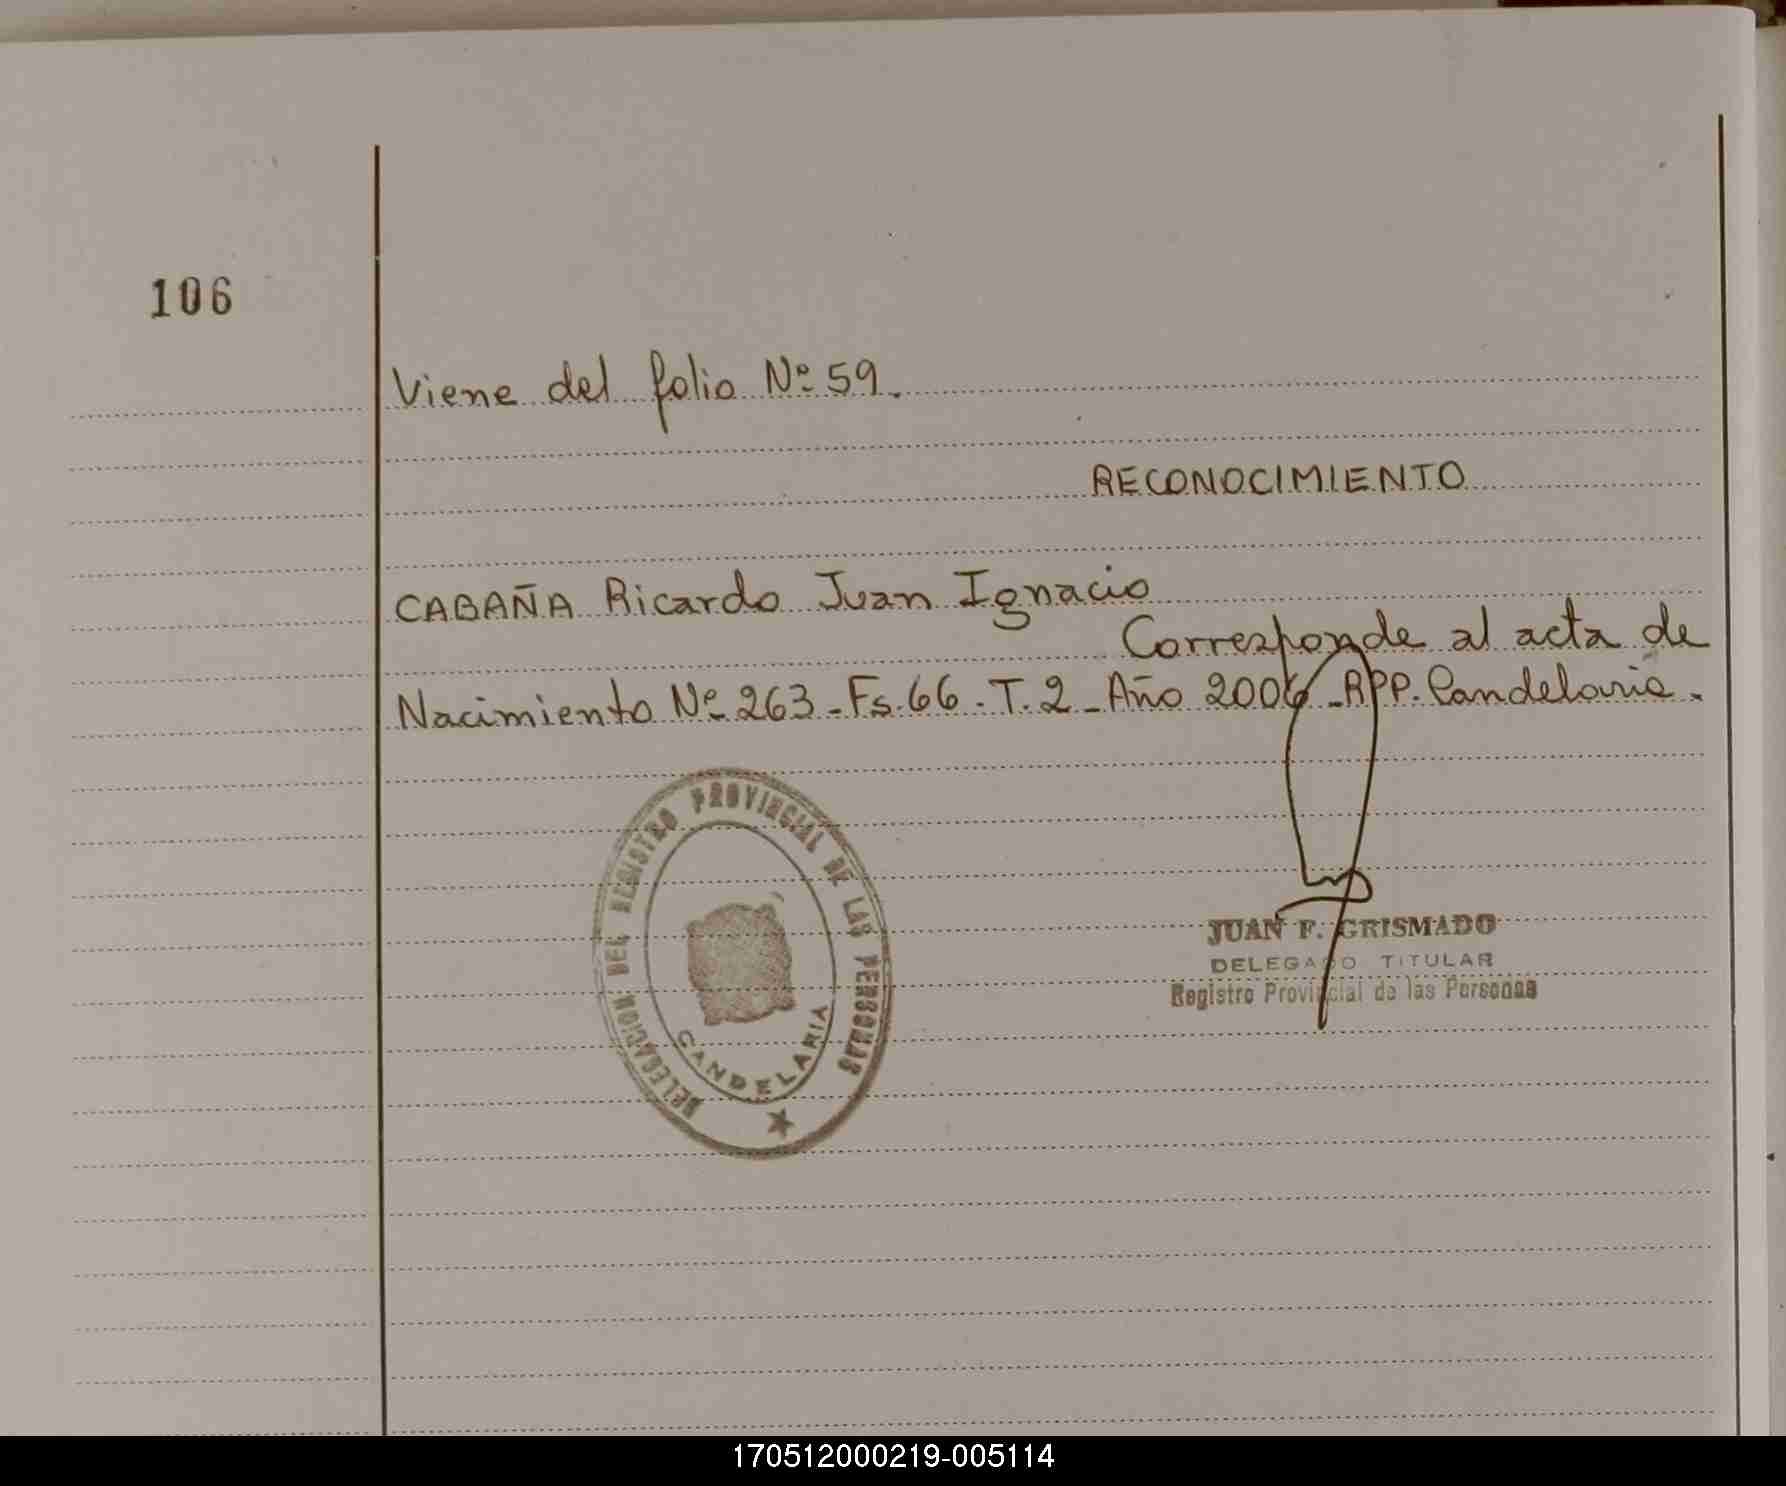 106
Viene del folio Nº 59.
RECONOCIMIENTO
CABAÑA Ricardo Juan Ignacio
Corresponde al acta de
Nacimiento Nº 263 - Fs. 66 - T. 2 - Año 2006 - RPP. Candelaria.
DELEGACION DEL REGISTRO PROVINCIAL DE LAS PERSONAS
CANDELARIA
JUAN F. GRISMADO
DELEGADO TITULAR
Registro Provincial de las Personas
170512000219-005114